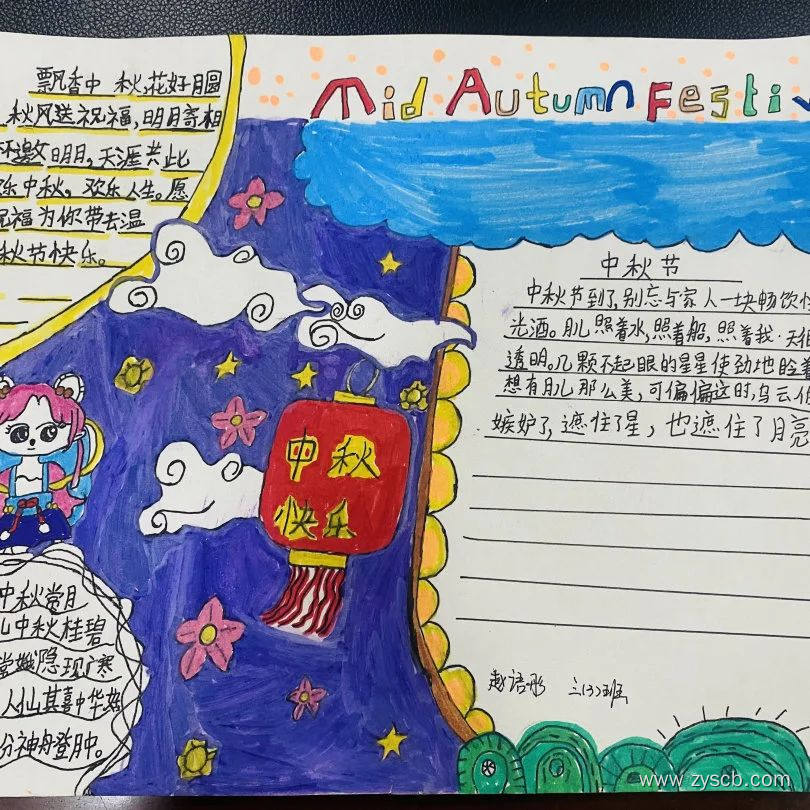 Mid Autumn Festi
飘香中 秋,花好月圆
秋风送祝福,明月寄相
怀邀明月,天涯共此
乐中秋。欢乐人生。愿
祝福为你带去温
秋节快乐。
中秋
快乐
中秋赏月
中秋桂碧
嫦娥隐现广寒
人仙其喜中华
份神舟登月中。
中秋节
中秋节到了,别忘与家人一块畅饮
光酒。月儿照着水,照着船,照着我.天
透明。几颗不起眼的星星使劲地
想有月儿那么美,可偏偏这时,乌云
嫉妒了,遮住了星,也遮住了月亮
赵语彤 三(3)班
www.zyscb.com